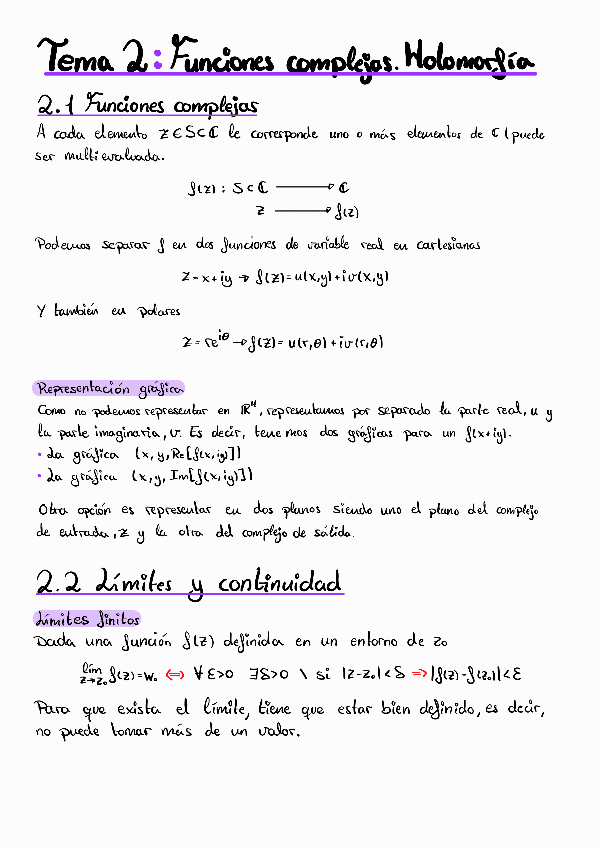 Tema 2: Funciones complejas. Holomorfía
2.1 Funciones complejas
A cada elemento z ∈ S ⊂ ℂ le corresponde uno o más elementos de ℂ (puede
ser multievaluada.
f(z) : S ⊂ ℂ ⟶ ℂ
z ⟶ f(z)
Podemos separar f en dos funciones de variable real en cartesianas
z = x+iy → f(z) = u(x,y) + i v(x,y)
Y también en polares
z = re^{iθ} → f(z) = u(r,θ) + i v(r,θ)
Representación gráfica
Como no podemos representar en ℝ⁴, representamos por separado la parte real, u y
la parte imaginaria, v. Es decir, tenemos dos gráficas para un f(x+iy).
• La gráfica (x, y, Re[f(x,iy)])
• La gráfica (x, y, Im[f(x,iy)])
Otra opción es representar en dos planos siendo uno el plano del complejo
de entrada, z y la otra del complejo de salida.
2.2 Límites y continuidad
Límites finitos
Dada una función f(z) definida en un entorno de z₀
lím z→z₀ f(z) = w₀ ⟺ ∀ ε>0 ∃δ>0 \ si |z-z₀| < δ ⇒ |f(z)-f(z₀)| < ε
Para que exista el límite, tiene que estar bien definido, es decir,
no puede tomar más de un valor.